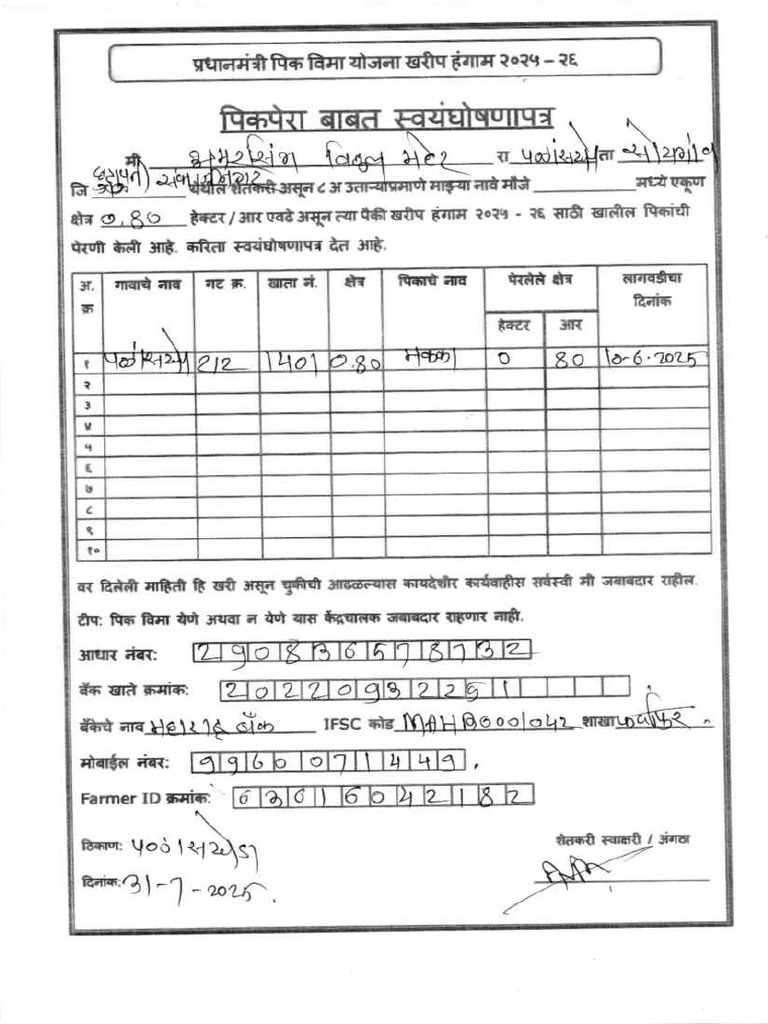 प्रधानमंत्री पिक विमा योजना खरीप हंगाम २०२५ – २६
पिकपेरा बाबत स्वयंघोषणापत्र
मी अमरसिंग विठ्ठल रा ता सोयगांव
जि येथील शेतकरी असून ८ अ उताऱ्याप्रमाणे माझ्या नावे मौजे मध्ये एकूण
क्षेत्र 0.80 हेक्टर / आर एवढे असून त्या पैकी खरीप हंगाम २०२५ - २६ साठी खालील पिकांची
पेरणी केली आहे. करिता स्वयंघोषणापत्र देत आहे.
अ. क्र गावाचे नाव गट क्र. खाता नं. क्षेत्र पिकाचे नाव पेरलेले क्षेत्र लागवडीचा दिनांक
हेक्टर आर
१ 212 1401 0.80 मका 0 80 10-6-2025
२
३
४
५
६
७
८
९
१०
वर दिलेली माहिती हि खरी असून चुकीची आढळल्यास कायदेशीर कार्यवाहीस सर्वस्वी मी जबाबदार राहील.
टीप: पिक विमा येणे अथवा न येणे यास केंद्रचालक जबाबदार राहणार नाही.
आधार नंबर: 290836578732
बँक खाते क्रमांक: 20220932261
बँकेचे नाव बँक IFSC कोड MAHB0001042 शाखा
मोबाईल नंबर: 9960071449.
Farmer ID क्रमांक:
ठिकाण:
शेतकरी स्वाक्षरी / अंगठा
दिनांक: 31-7-2025.